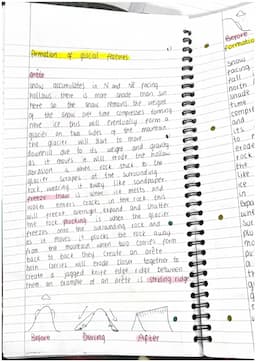 Formation of glacial features
arête
snow accumulates in N and NE facing
hollows there is more shade than sun
here so the snow remains the weight
of the snow over time compresses forming
more ice this will eventually form a
glacier on two sides of the mountain.
the glacier will start to move
downhill due to its weight and gravity.
as it moves it will erode the hollow
abrasion is when rock stuck to the
glacier scrapes at the surrounding
rock, wearing it away like sandpaper.
freeze thaw is where ice melts and
water enters cracks in the rock. this
will freeze overnight, expand and shatter
the rock. plucking is when the glacier
freezes onto the surrounding rock and
as it moves it plucks the rock away
from the mountain when two corries form
back to back they create an arête
both corries will erode closer together to
create a jagged knife edge ridge between
them an example of an arête is striding ridge
Before
During
After
Before
formation
snow
facing
fall
north
shade
time
compre
and
its
to
erode
rock
the
like
ice
in